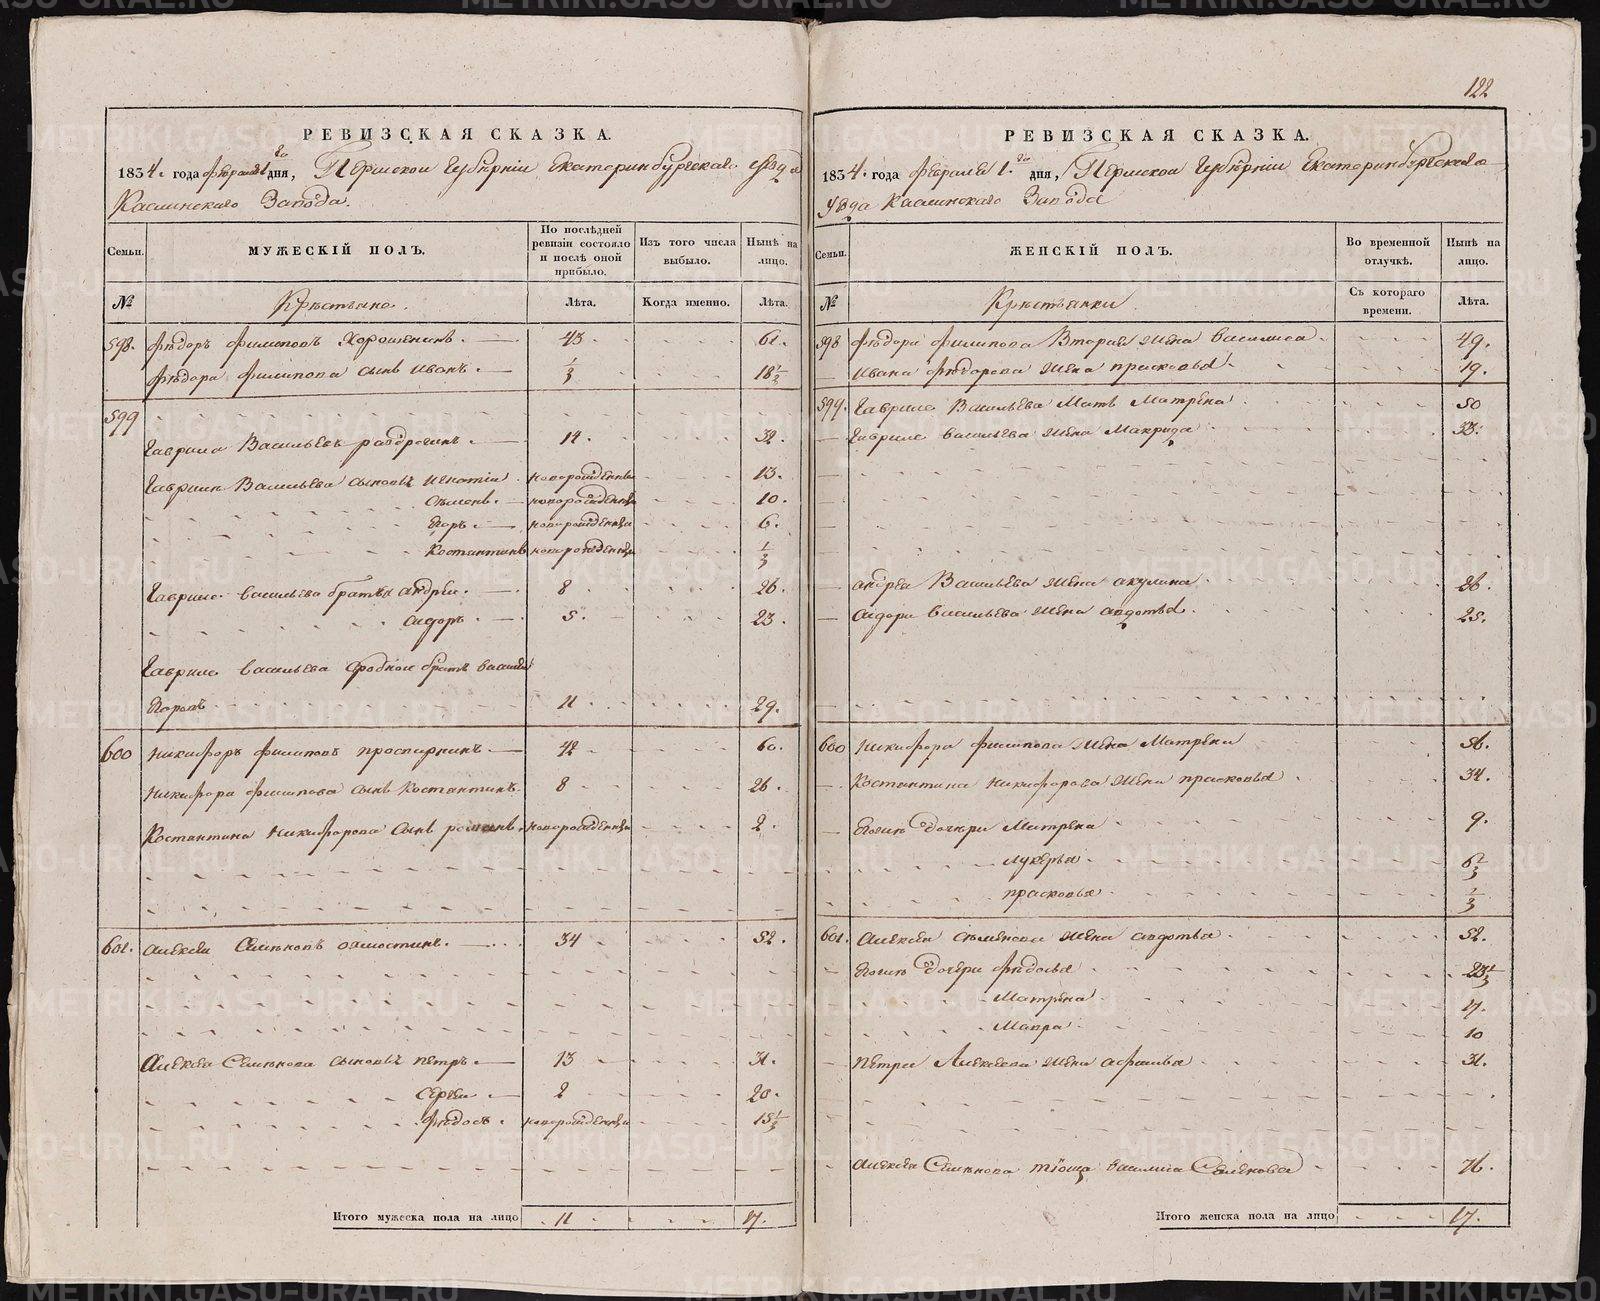 122
РЕВИЗСКАЯ СКАЗКА.
1834. года февраля 1го дня, Пермской Губернiи Екатеринбургскаго уѣзда
Каслинскаго Завода.
Семьи. МУЖЕСКІЙ ПОЛЪ. По послѣдней ревизіи состояло и послѣ оной прибыло. Изъ того числа выбыло. Нынѣ на лицо.
№ Крѣстьяне. Лѣта. Когда именно. Лѣта.
598. Фѣдоръ Филиповъ Хорошенинъ. 43 61.
Фѣдора Филипова сынъ Иванъ. 1/3 18 1/3
599
Гаврила Васильевъ 14. 32.
Гаврилы Васильева сыновья Игнатiи новорожденны 13.
Сѣменъ. новорожденны 10.
Егоръ. новорожденны 6.
Костантинъ новорожденны 1/3
Гаврилы Васильева братья Андреи. 8 26.
Сидоръ. 5. 23.
Гаврилы Васильева сродной братъ Василеи
Егоровъ 11 29.
600 Никифоръ Филиповъ проспирнинъ 42 60.
Никифора Филипова сынъ Костантинъ. 8 26.
Костантина Никифорова сынъ романъ. новорожденны 2.
601. Алексеи Семеновъ 34 52.
Алексеа Семенова сыновья петръ. 13 31.
Сергеи 2 20.
Фѣдосъ. новорожденны 15 1/3
Итого мужеска пола на лицо 11 17.
РЕВИЗСКАЯ СКАЗКА.
1834. года февраля 1.го дня, Пермской Губернiи Екатеринбургскаго
уѣзда Каслинскаго Завода
Семьи. ЖЕНСКІЙ ПОЛЪ. Во временной отлучкѣ. Нынѣ на лицо.
№ Крѣстьянки Съ котораго времени. Лѣта.
598 Фѣдора Филипова Вторая жена василиса 49.
Ивана Фѣдорова жена прасковья 19.
599. Гаврилы Васильева Мать Матрѣна 50
Гаврилы васильева жена Макрида 33.
Андреа Васильева жена акулина 26.
Сидора васильева жена авдотья 25.
600 Никифора Филипова жена Матрѣна 56.
Костантина Никифорова жена прасковья 34.
Егожъ дочери Матрена 9.
лукерья 6 2/3
прасковья 1/3
601. Алексеа семенова жена авдотья 52.
Егожъ дочери Фѣдосья 23 1/3
Матрена 17.
Мавра 10
Петра Алексеева жена афимья 31.
Алексеа Семенова тiоща василиса Семенова 76.
Итого женска пола на лицо 17.
METRIKI.GASO-URAL.RU